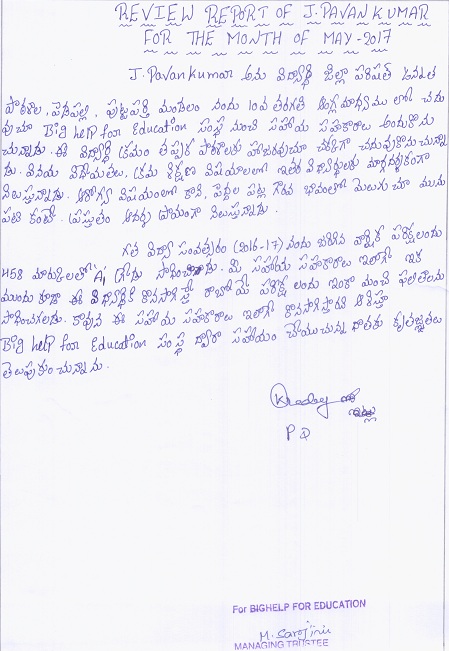 REVIEW REPORT OF J. PAVAN KUMAR
FOR THE MONTH OF MAY - 2017
J. Pavan kumar అను విద్యార్థి జిల్లా పరిషత్ ఉన్నత
పాఠశాల, పెడపల్లి, పుట్టపర్తి మండలం నందు 10వ తరగతి ఆంగ్లమాధ్యము లో చదు
వుచూ Big help for Education సంస్థ నుంచి సహాయ సహకారాలు అందుకొను
చున్నాడు. ఈ విద్యార్థి క్రమం తప్పక పాఠశాలకు హాజరవుచూ చక్కగా చదువుకొనుచున్నా
డు. వినయ విధేయతలు, క్రమ శిక్షణ విషయాలలో ఇతర విద్యార్థులకు మార్గదర్శకంగా
నిలుస్తున్నాడు. ఆరోగ్య విషయంలో కాని, పెద్దల పట్ల గౌరవ భావంతో మెలుగుచూ మును
పటి కంటే ప్రస్తుతం ఆదర్శ ప్రాయంగా నిలుస్తున్నాడు.
గత విద్యా సంవత్సరం (2016-17) నందు జరిగిన వార్షిక పరీక్షలందు
458 మార్కులతో 'A1' గ్రేడు సాధించినాడు. మీ సహాయ సహకారాలు ఇలాగే ఇక
ముందు కూడా ఈ విద్యార్థికి కొనసాగిస్తే రాబోయే పరీక్ష లందు ఇంకా మంచి ఫలితాలను
సాధించగలడు. కావున ఈ సహాయ సహకారాలు ఇలాగే కొనసాగిస్తారని ఆశిస్తూ
Big help for Education సంస్థ ద్వారా సహాయం చేయుచున్న దాతకు కృతజ్ఞతలు
తెలుపుకుంచున్నాను.
P D
For BIGHELP FOR EDUCATION
M. Sarojini
MANAGING TRUSTEE